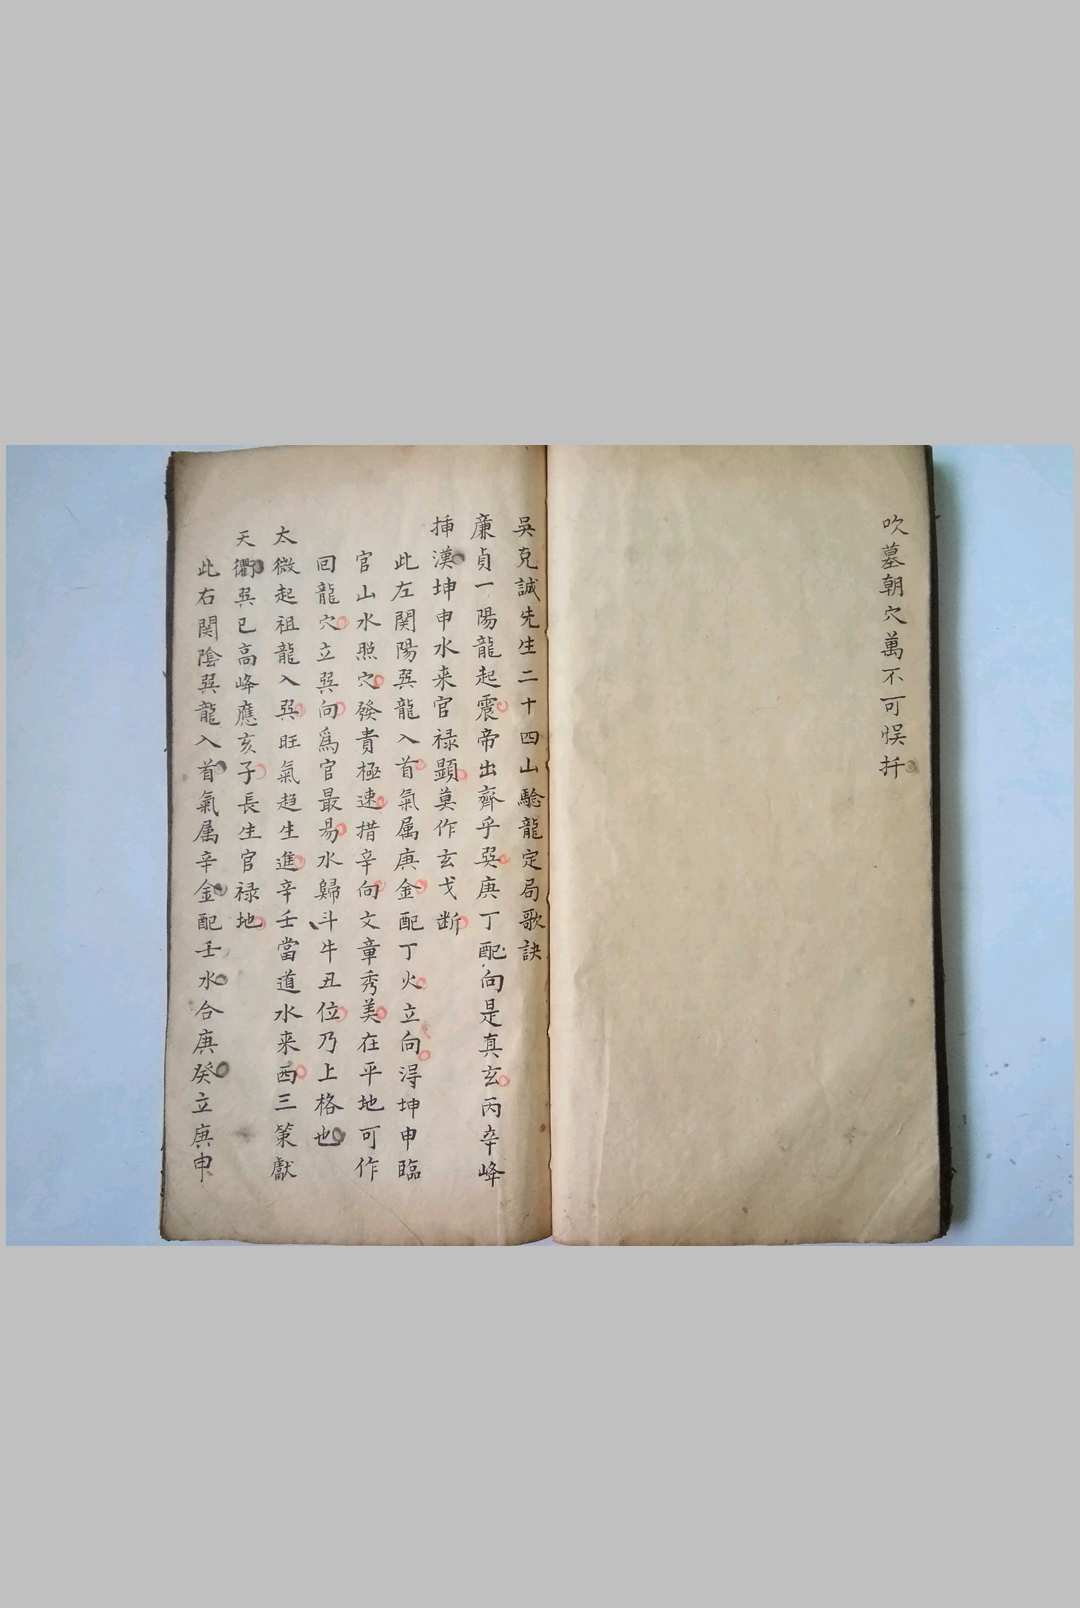 吹墓朝穴萬不可悮扦
吳克誠先生二十四山驗龍定局歌訣
廉貞一陽龍起震帝出齊乎巽庚丁配向是真玄丙辛峰
挿漢坤申水来官禄顕莫作玄戈断
此左関陽巽龍入首氣属庚金配丁火立向淂坤申臨
官山水照穴發貴極速措辛向文章秀美在平地可作
回龍穴立巽向爲官最易水歸斗牛丑位乃上格也
太微起祖龍入巽旺氣趋生進辛壬當道水来酉三策獻
天衢巽巳高峰應亥子長生官禄地
此右関陰巽龍入首氣属辛金配壬水合庚癸立庚申